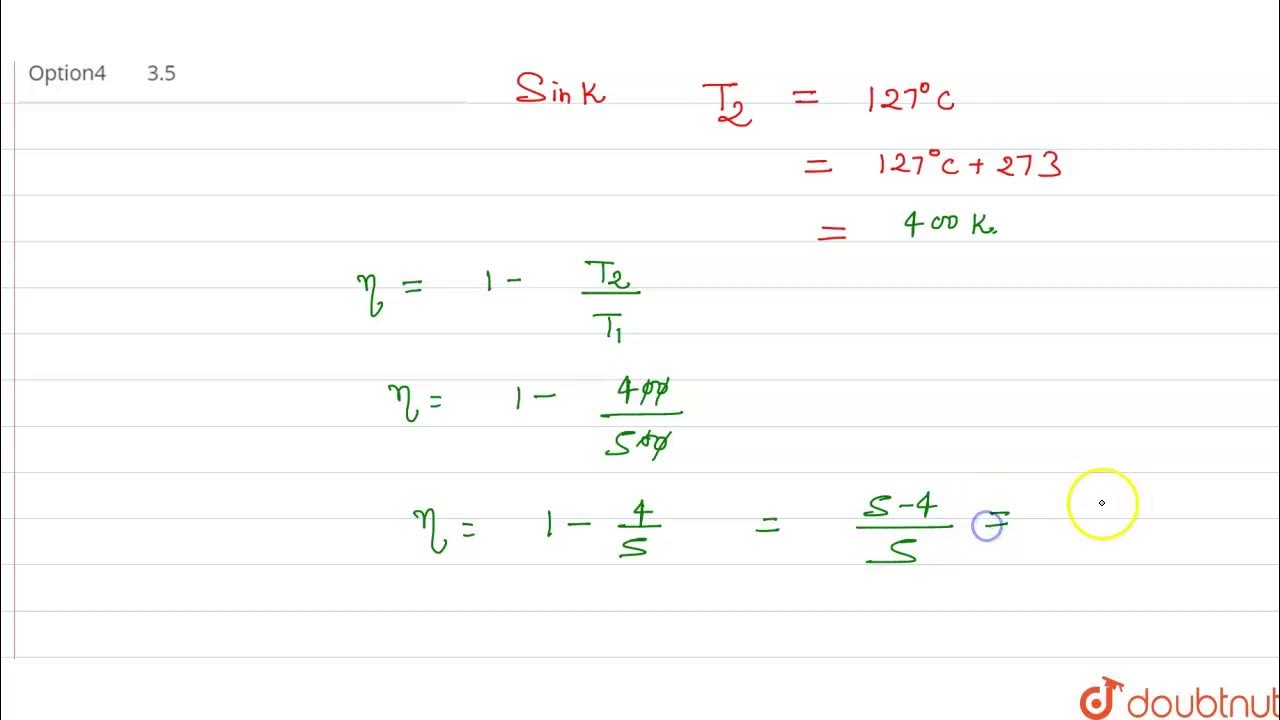 Option4 3.5
Sink T₂ = 127°C
= 127°C + 273
= 400 K.
η = 1 - T₂/T₁
η = 1 - 400/500
η = 1 - 4/5 = 5-4/5 =
doubtnut